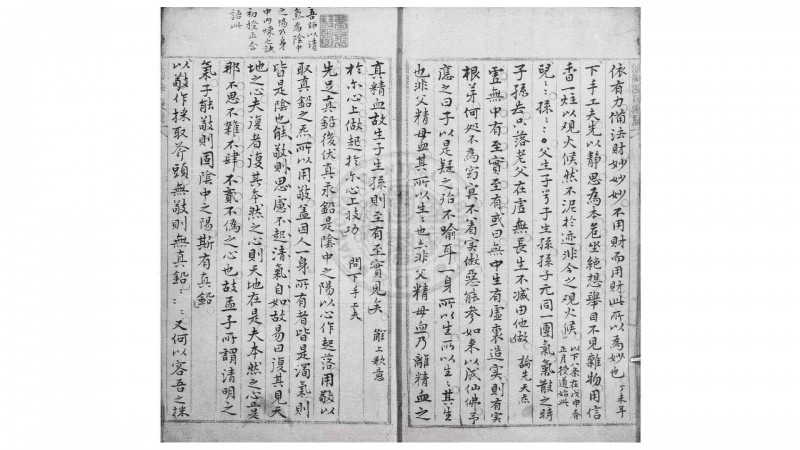 依有力備法財妙妙妙不用財而用財此所以為妙也丁未年
下手工夫先以靜思為本危坐絶想舉目不見雜物用信
香一炷以观火候然不泥於迹非今之观火候以下八条在戊申春正月授道始此
兒孫父生子兮子生孫孫子元同一團氣氣散之時
子孫去只落老父在虚無長生不減由他做論先天炁
虚無中有至實至有或曰無中生有虚裏造實則有實
根芽何処不為窈冥不着实做惡能参如来以成仙佛乎
應之曰子以是疑之殆不喻耳一身所以生所以生其生
也非父精母血其所以生也亦非父精母血乃離精血之
真精血故生子生孫則至有至實見矣解上歌意
於尔心上做起於尔心上技功問下手工夫
先足真鉛後伏真汞鉛是陰中之陽以心作起落用敬以
取真鉛之炁所以用敬盖因人一身所有者皆是濁氣則
皆是陰也能敬則思慮不起清氣自如故易曰復其見天
地之心夫復者復其本然之心則天地在是夫本然之心正是
那不思不雜不肆不貳不偽之心也故孟子所謂清明之
氣子能敬則固陰中之陽斯有真鉛
以敬作採取斧頭無敬則無真鉛又何以容吾之採
吾師以清氣為陰中之陽乃身中内煉之訣初授正合語此